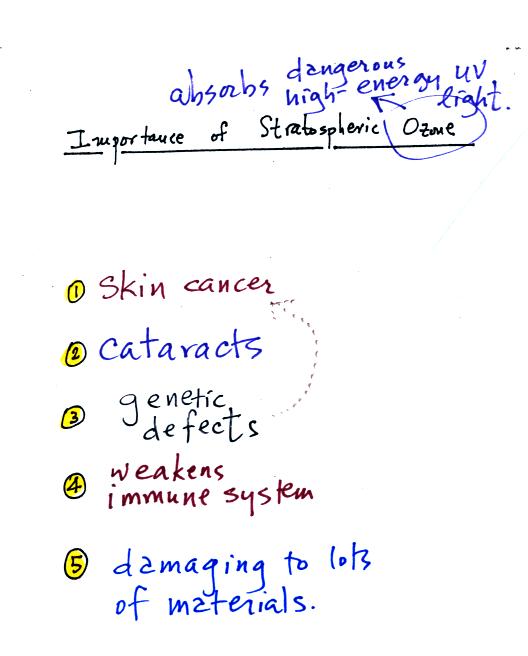 absorbs dangerous
high-energy UV
light.
Importance of Stratospheric Ozone
① Skin cancer
② Cataracts
③ genetic
defects
④ weakens
immune system
⑤ damaging to lots
of materials.